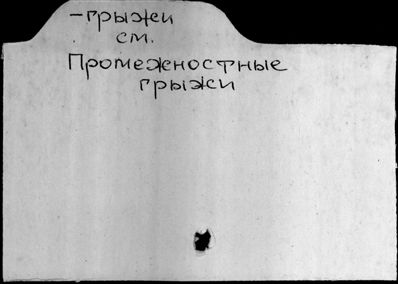 -грыжи
см.
Промежностные
грыжи